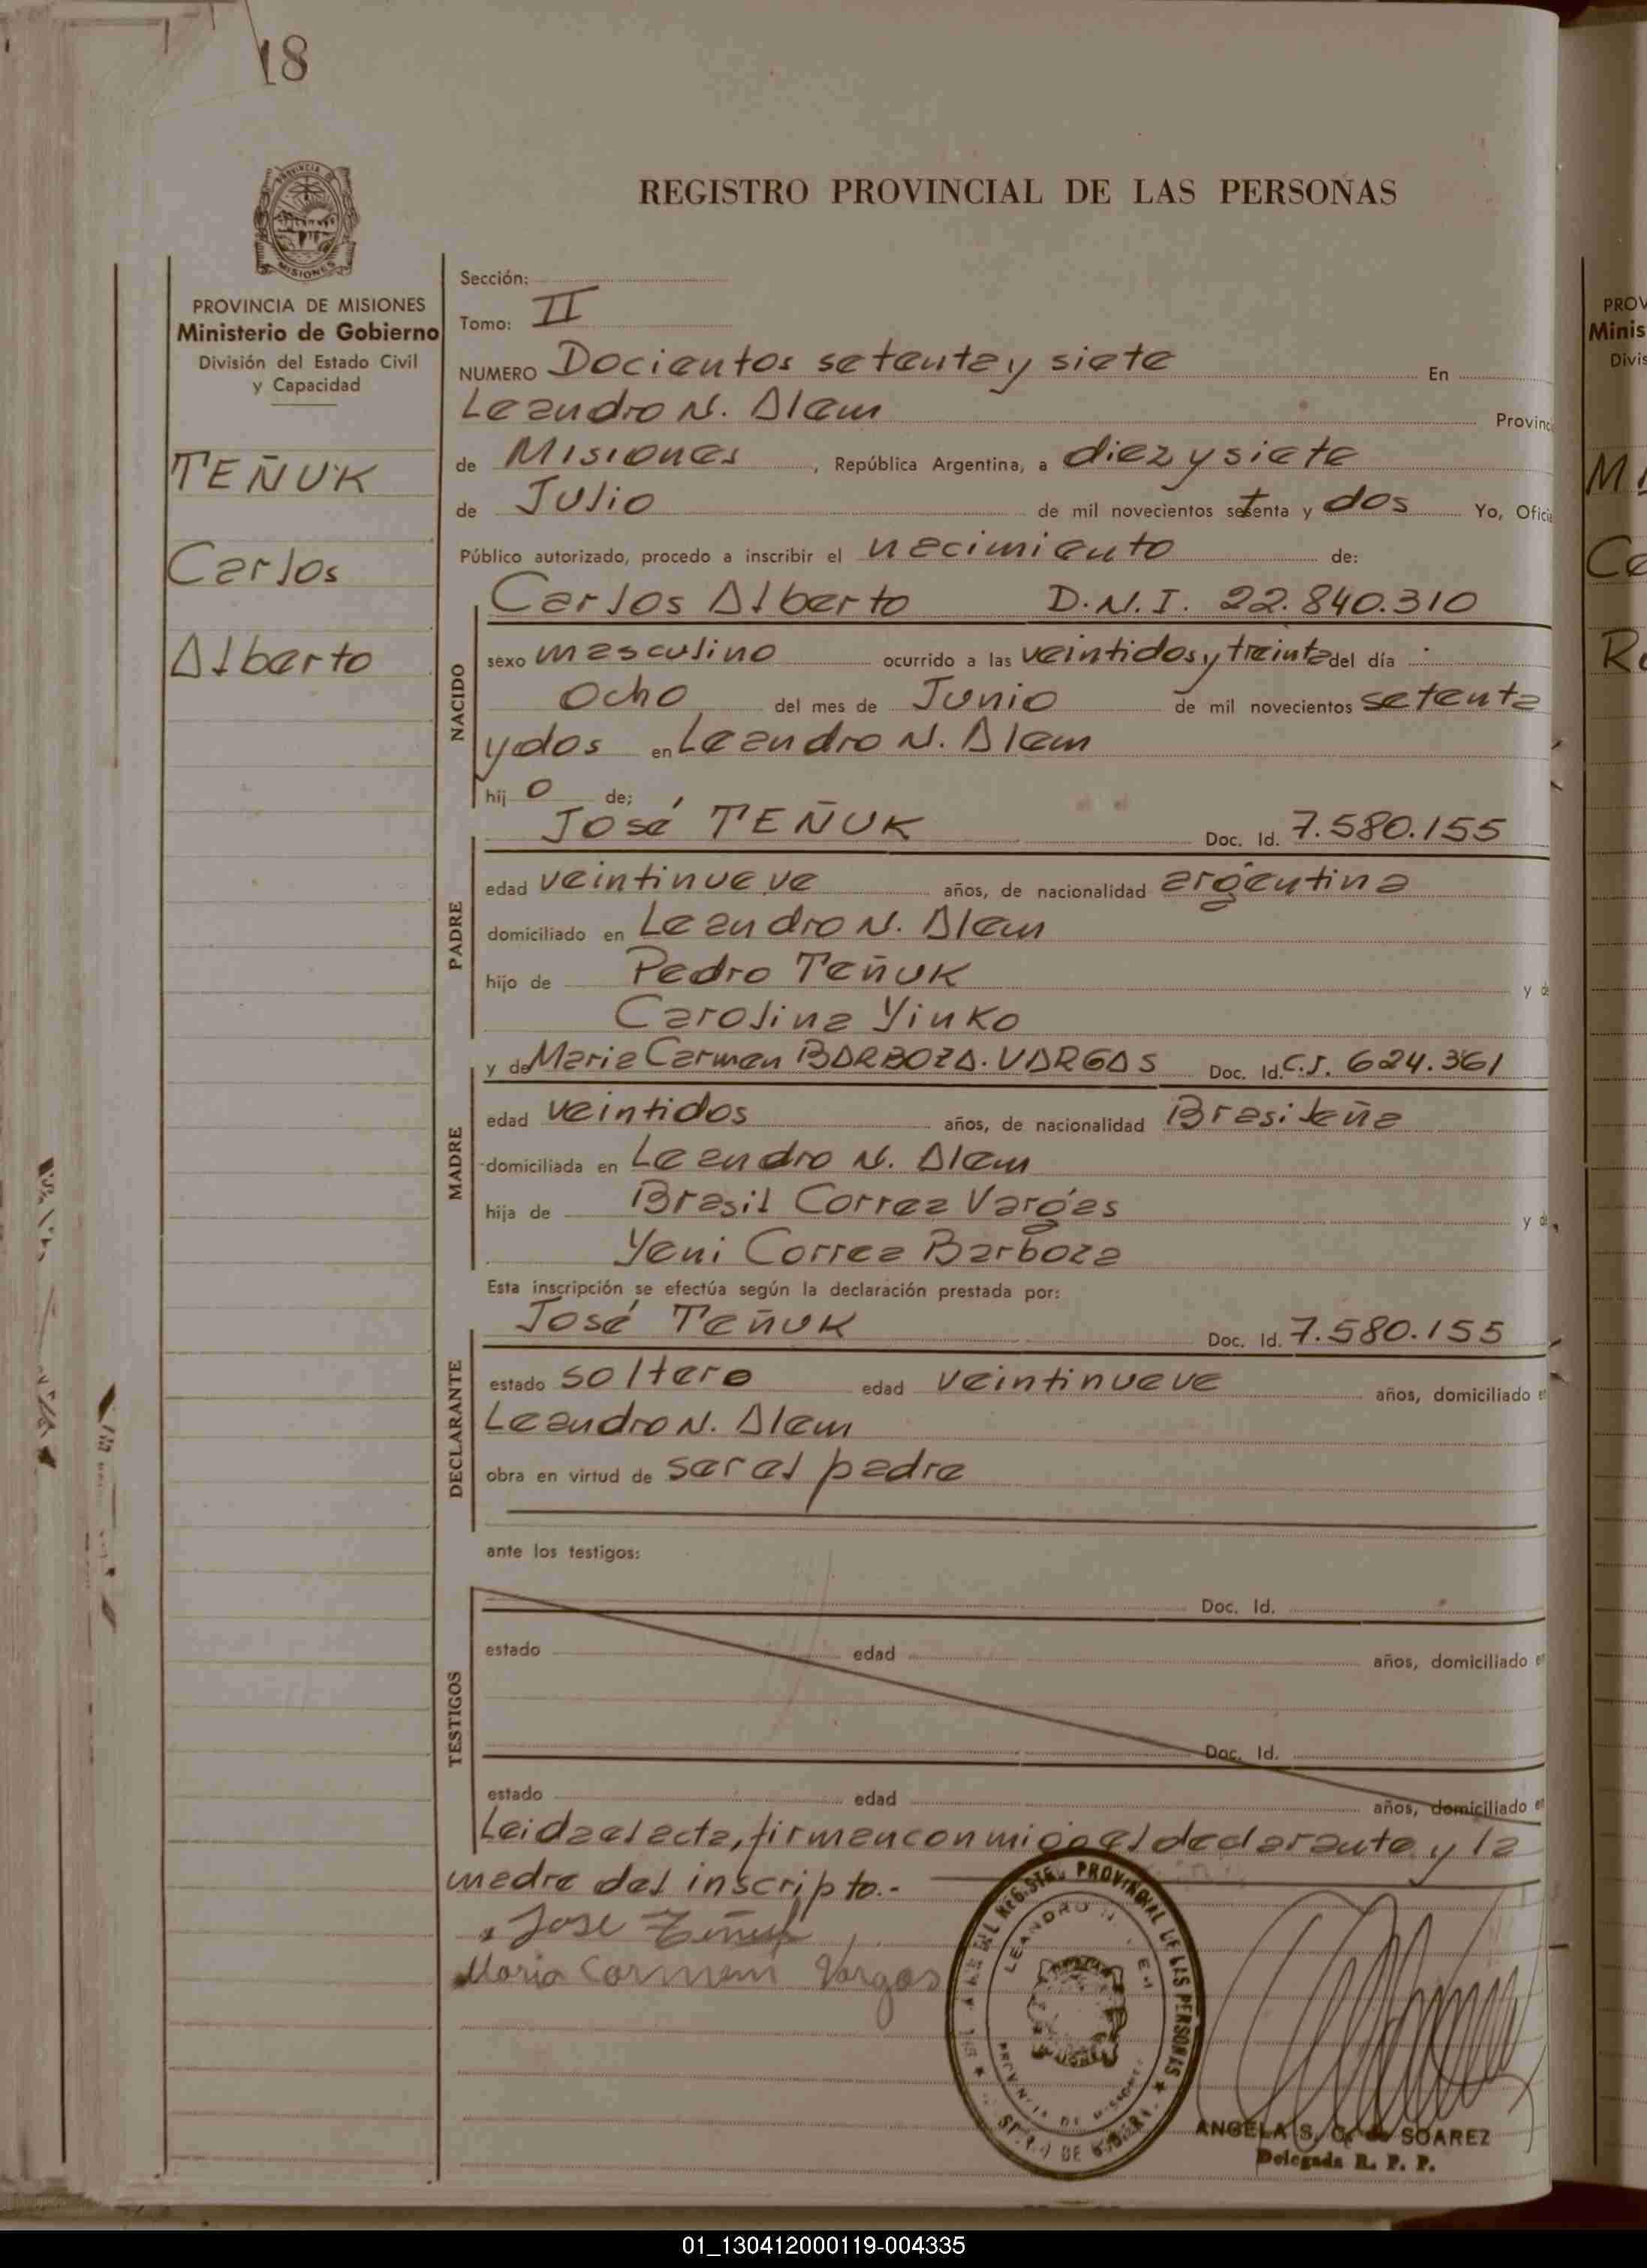 18
REGISTRO PROVINCIAL DE LAS PERSONAS
PROVINCIA DE MISIONES
Ministerio de Gobierno
División del Estado Civil
y Capacidad
TEÑUK
Carlos
Alberto
Sección:
Tomo: II
NUMERO Docientos setenta y siete En
Leandro N. Alem Provinci
de Misiones, República Argentina, a diez y siete
de Julio de mil novecientos setenta y dos Yo, Oficia
Público autorizado, procedo a inscribir el nacimiento de:
NACIDO
Carlos Alberto D.N.I. 22.840.310
sexo masculino ocurrido a las veintidos y treinta del día
ocho del mes de Junio de mil novecientos setenta
y dos en Leandro N. Alem
hij o de;
PADRE
José TEÑUK Doc. Id. 7.580.155
edad veintinueve años, de nacionalidad argentina
domiciliado en Leandro N. Alem
hijo de Pedro Teñuk y de
Carolina Yinko
MADRE
y de Maria Carmen BARBOZA. VARGAS Doc. Id. C.I. 624.361
edad veintidos años, de nacionalidad Brasileña
domiciliada en Leandro N. Alem
hija de Brasil Correa Vargas y de
Yeni Correa Barboza
Esta inscripción se efectúa según la declaración prestada por:
DECLARANTE
José Teñuk Doc. Id. 7.580.155
estado soltero edad veintinueve años, domiciliado en
Leandro N. Alem
obra en virtud de ser el padre
ante los testigos:
TESTIGOS
Doc. Id.
estado edad años, domiciliado en
Doc. Id.
estado edad años, domiciliado en
Leida el acta, firman conmigo el declarante y la
madre del inscripto.-
Jose Teñuk
Maria Carmen Vargas
PROVINCIAL DE LAS PERSONAS
LEANDRO N.
PROVINCIA DE MISIONES
ANGELA S. C. de SOAREZ
Delegada R. P. P.
PROV
Minis
Divis
01_130412000119-004335